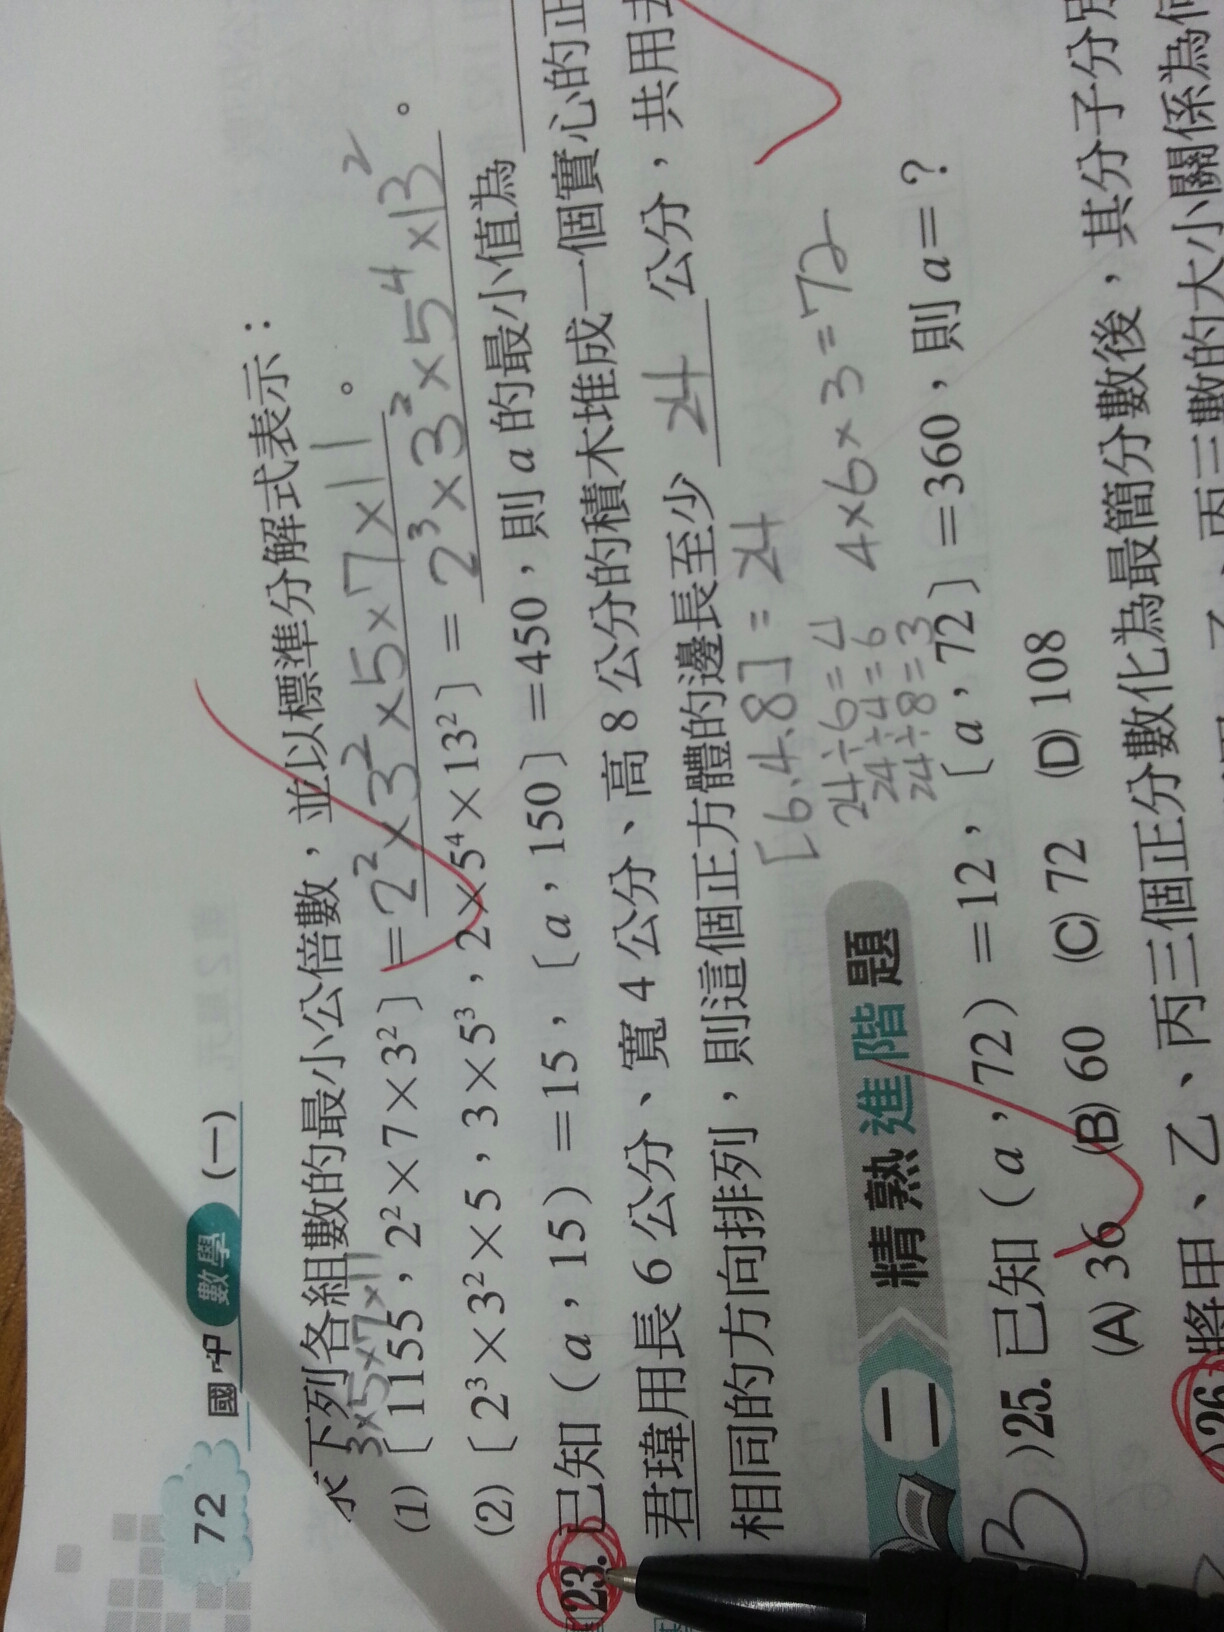 72 國中 數學 (一)
求下列各組數的最小公倍數，並以標準分解式表示：
3×5×7×11
(1)〔1155，2²×7×3²〕=2²×3²×5×7×11。
(2)〔2³×3²×5，3×5³，2×5⁴×13²〕=2³×3²×5⁴×13²。
23. 已知（a，15）=15，〔a，150〕=450，則 a 的最小值為
君瑋用長 6 公分、寬 4 公分、高 8 公分的積木堆成一個實心的正
相同的方向排列，則這個正方體的邊長至少 24 公分，共用去
[6.4.8]=24
24÷6=4
24÷4=6
24÷8=3
4×6×3=72
二 精熟進階題
B )25. 已知（a，72）=12，〔a，72〕=360，則 a=？
(A) 36 (B) 60 (C) 72 (D) 108
)26. 將甲、乙、丙三個正分數化為最簡分數後，其分子分別
丙三數的大小關係為何